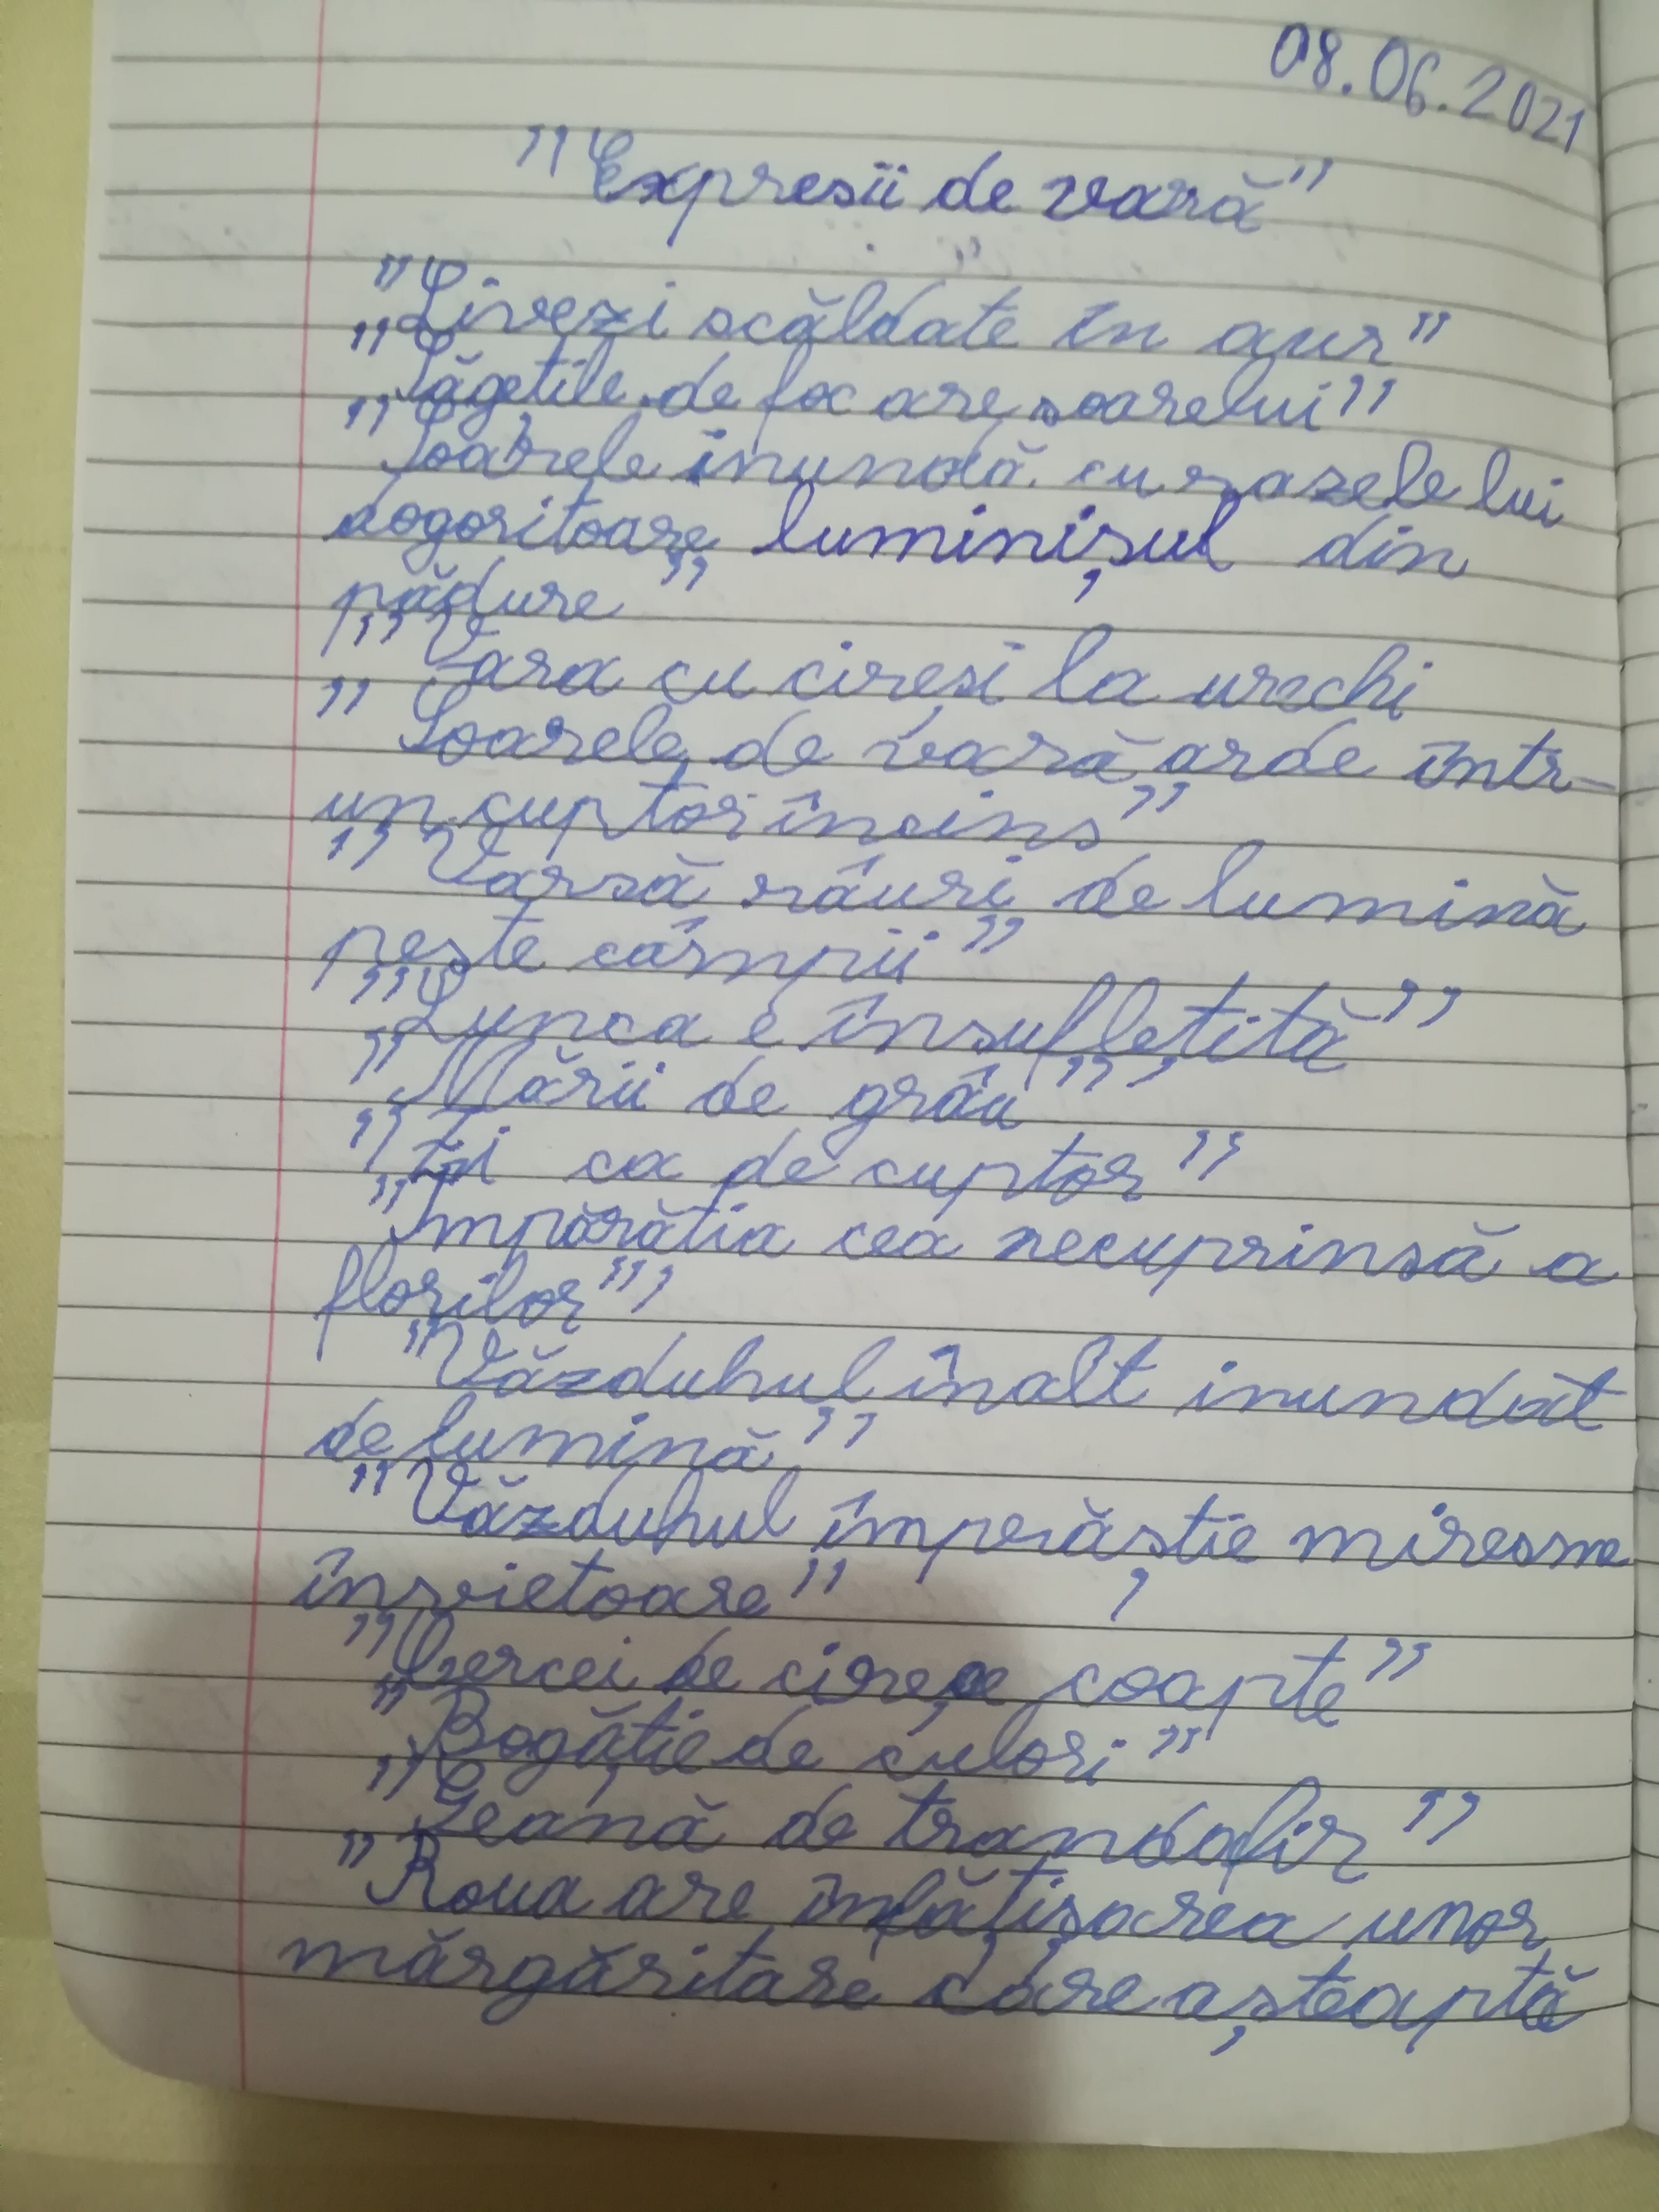 08.06.2021
"Expresii de vară"
"Livezi scăldate în aur"
"Săgețile de foc are soarelui"
"Soarele inundă cu razele lui
dogoritoare luminișul din
pădure"
"Vara cu cireși la urechi
"Soarele de vară arde într-
un cuptor încins"
"Varsă râuri de lumină
peste câmpii"
"Lunca e însuflețită"
"Mării de grâu"
"Zi ca de cuptor"
"Împărăția cea necuprinsă a
florilor"
"Văzduhul înalt inundat
de lumină"
"Văzduhul împrăștie miresme
învietoare"
"Cercei de cireșe coapte"
"Bogăție de culori"
"Geană de trandafir"
"Roua are înfățișarea unor
mărgăritare care așteaptă